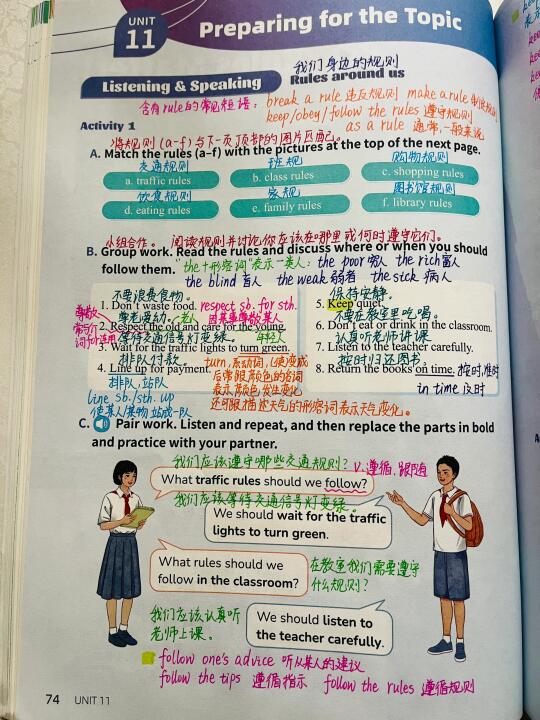 UNIT 11
Preparing for the Topic
我们身边的规则
Listening & Speaking Rules around us
含有rule的常见短语: break a rule 违反规则 make a rule 制定规则
keep/obey/follow the rules 遵守规则
as a rule 通常,一般来说
Activity 1
将规则(a-f)与下一页顶部的图片匹配。
A. Match the rules (a–f) with the pictures at the top of the next page.
交通规则 班规 购物规则
a. traffic rules b. class rules c. shopping rules
饮食规则 家规 图书馆规则
d. eating rules e. family rules f. library rules
小组合作。 阅读规则并讨论你应该在哪里或何时遵守它们。
B. Group work. Read the rules and discuss where or when you should
follow them. "the+形容词"表示一类人: the poor 穷人 the rich 富人
the blind 盲人 the weak 弱者 the sick 病人
不要浪费食物。 保持安静。
1. Don't waste food. respect sb. for sth. 5. Keep quiet.
尊老爱幼。 老人 因某事尊敬某人 不要在教室里吃喝。
2. Respect the old and care for the young. 6. Don't eat or drink in the classroom.
等待交通信号灯变绿。 年轻人 认真听老师讲课
3. Wait for the traffic lights to turn green. 7. Listen to the teacher carefully.
排队付款 turn,系动词,(使)变成 按时归还图书
4. Line up for payment. 后常跟颜色的名词 8. Return the books on time. 按时,准时
排队,站队 表示颜色发生变化 in time 及时
line sb./sth. up 还可跟描述天气的形容词表示天气变化。
使某人/某物站成一队
C. Pair work. Listen and repeat, and then replace the parts in bold
and practice with your partner.
我们应该遵守哪些交通规则? v. 遵循,跟随
What traffic rules should we follow?
我们应该等待交通信号灯变绿。
We should wait for the traffic
lights to turn green.
What rules should we
follow in the classroom?
在教室我们需要遵守
什么规则?
我们应该认真听
老师上课。
We should listen to
the teacher carefully.
follow one's advice 听从某人的建议
follow the tips 遵循指示 follow the rules 遵循规则
74 UNIT 11